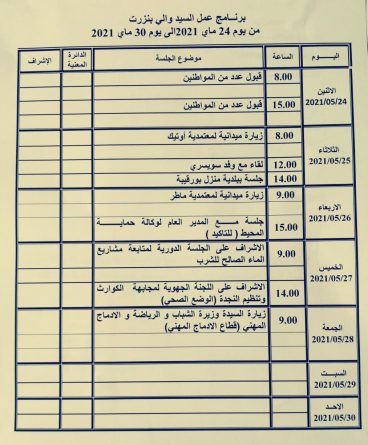 برنامج عمل السيد والي بنزرت
من يوم 24 ماي 2021الى يوم 30 ماي 2021
اليوم الساعة موضوع الجلسة الدائرة المعنية الإشراف
الاثنين 2021/05/24
8.00 قبول عدد من المواطنين
15.00 قبول عدد من المواطنين
الثلاثاء 2021/05/25
8.00 زيارة ميدانية لمعتمدية أوتيك
12.00 لقاء مع وفد سويسري
14.00 جلسة ببلدية منزل بورقيبة
الاربعاء 2021/05/26
9.00 زيارة ميدانية لمعتمدية ماطر
15.00 جلسة مع المدير العام لوكالة حماية
المحيط ( للتاكيد )
الخميس 2021/05/27
9.00 الاشراف على الجلسة الدورية لمتابعة مشاريع
الماء الصالح للشرب
14.00 الاشراف على اللجنة الجهوية لمجابهة الكوارث
وتنظيم النجدة (الوضع الصحي)
الجمعة 2021/05/28
9.00 زيارة السيدة وزيرة الشباب و الرياضة و الادماج
المهني (قطاع الادماج المهني)
السبت 2021/05/29
الاحد 2021/05/30